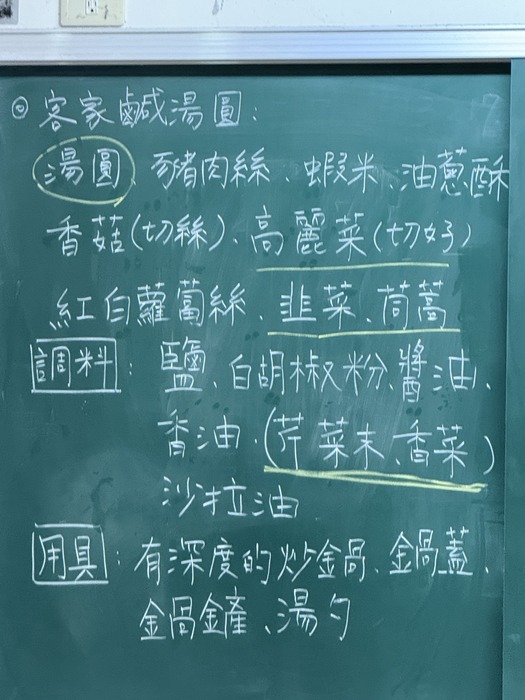 ◎客家鹹湯圓:
湯圓、豬肉絲、蝦米、油蔥酥
香菇(切絲)、高麗菜(切好)
紅白蘿蔔絲、韭菜、茼蒿
調料:鹽、白胡椒粉、醬油、
香油、(芹菜末、香菜)
沙拉油
用具:有深度的炒鍋、鍋蓋、
鍋鏟、湯勺